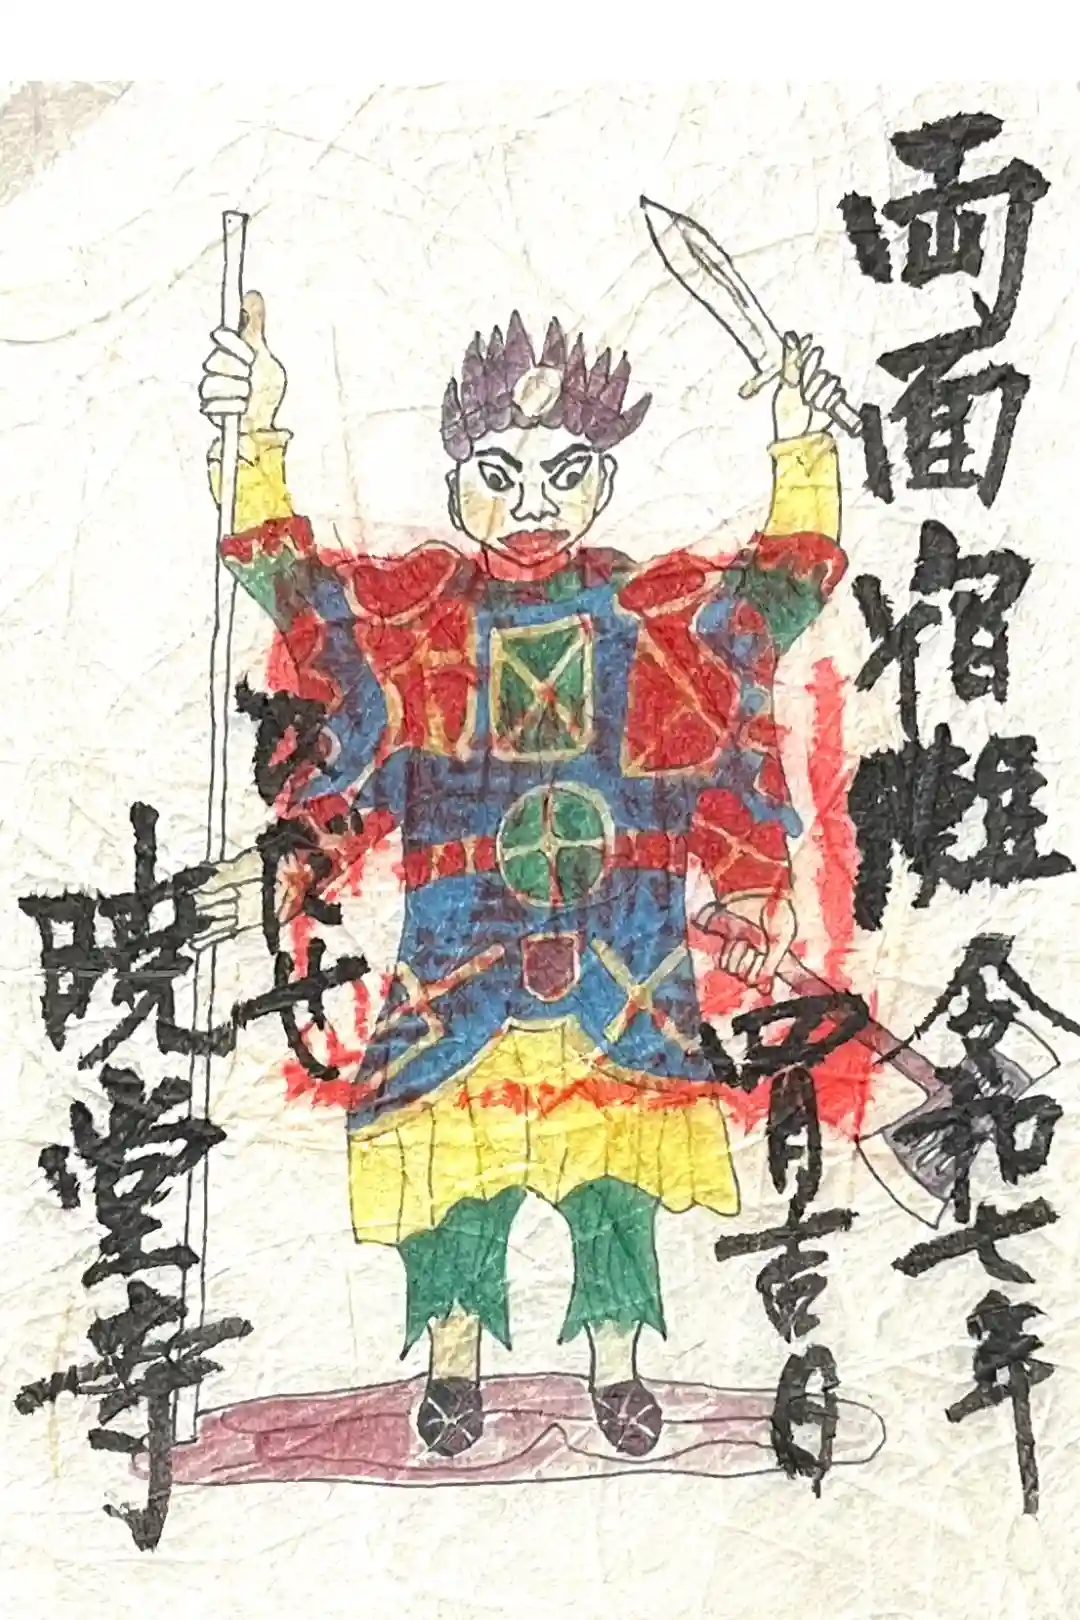 両面宿儺
令和七年
四月吉日
暁堂寺